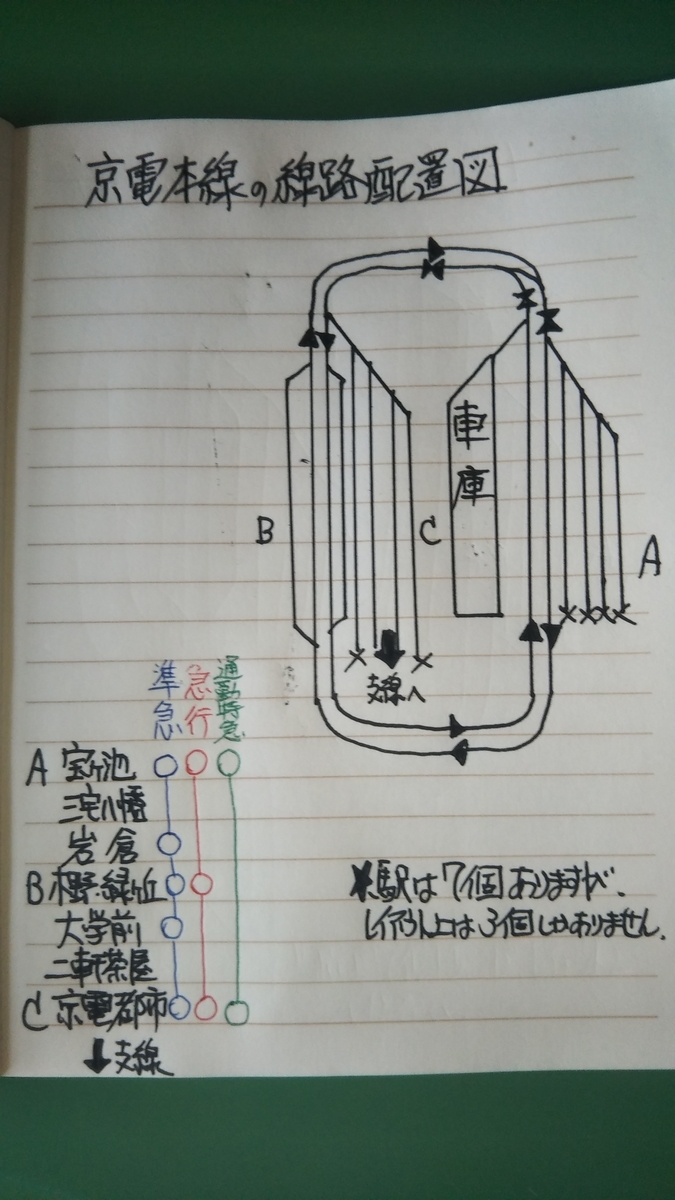 京電本線の線路配置図
車庫
B
C
A
支線へ
準急
急行
通勤特急
A 宝ヶ池
三宅八幡
岩倉
B 樫野緑丘
大学前
二軒茶屋
C 京電都市
支線
※駅は7個ありますが、
レイアウト上は3個しかありません。